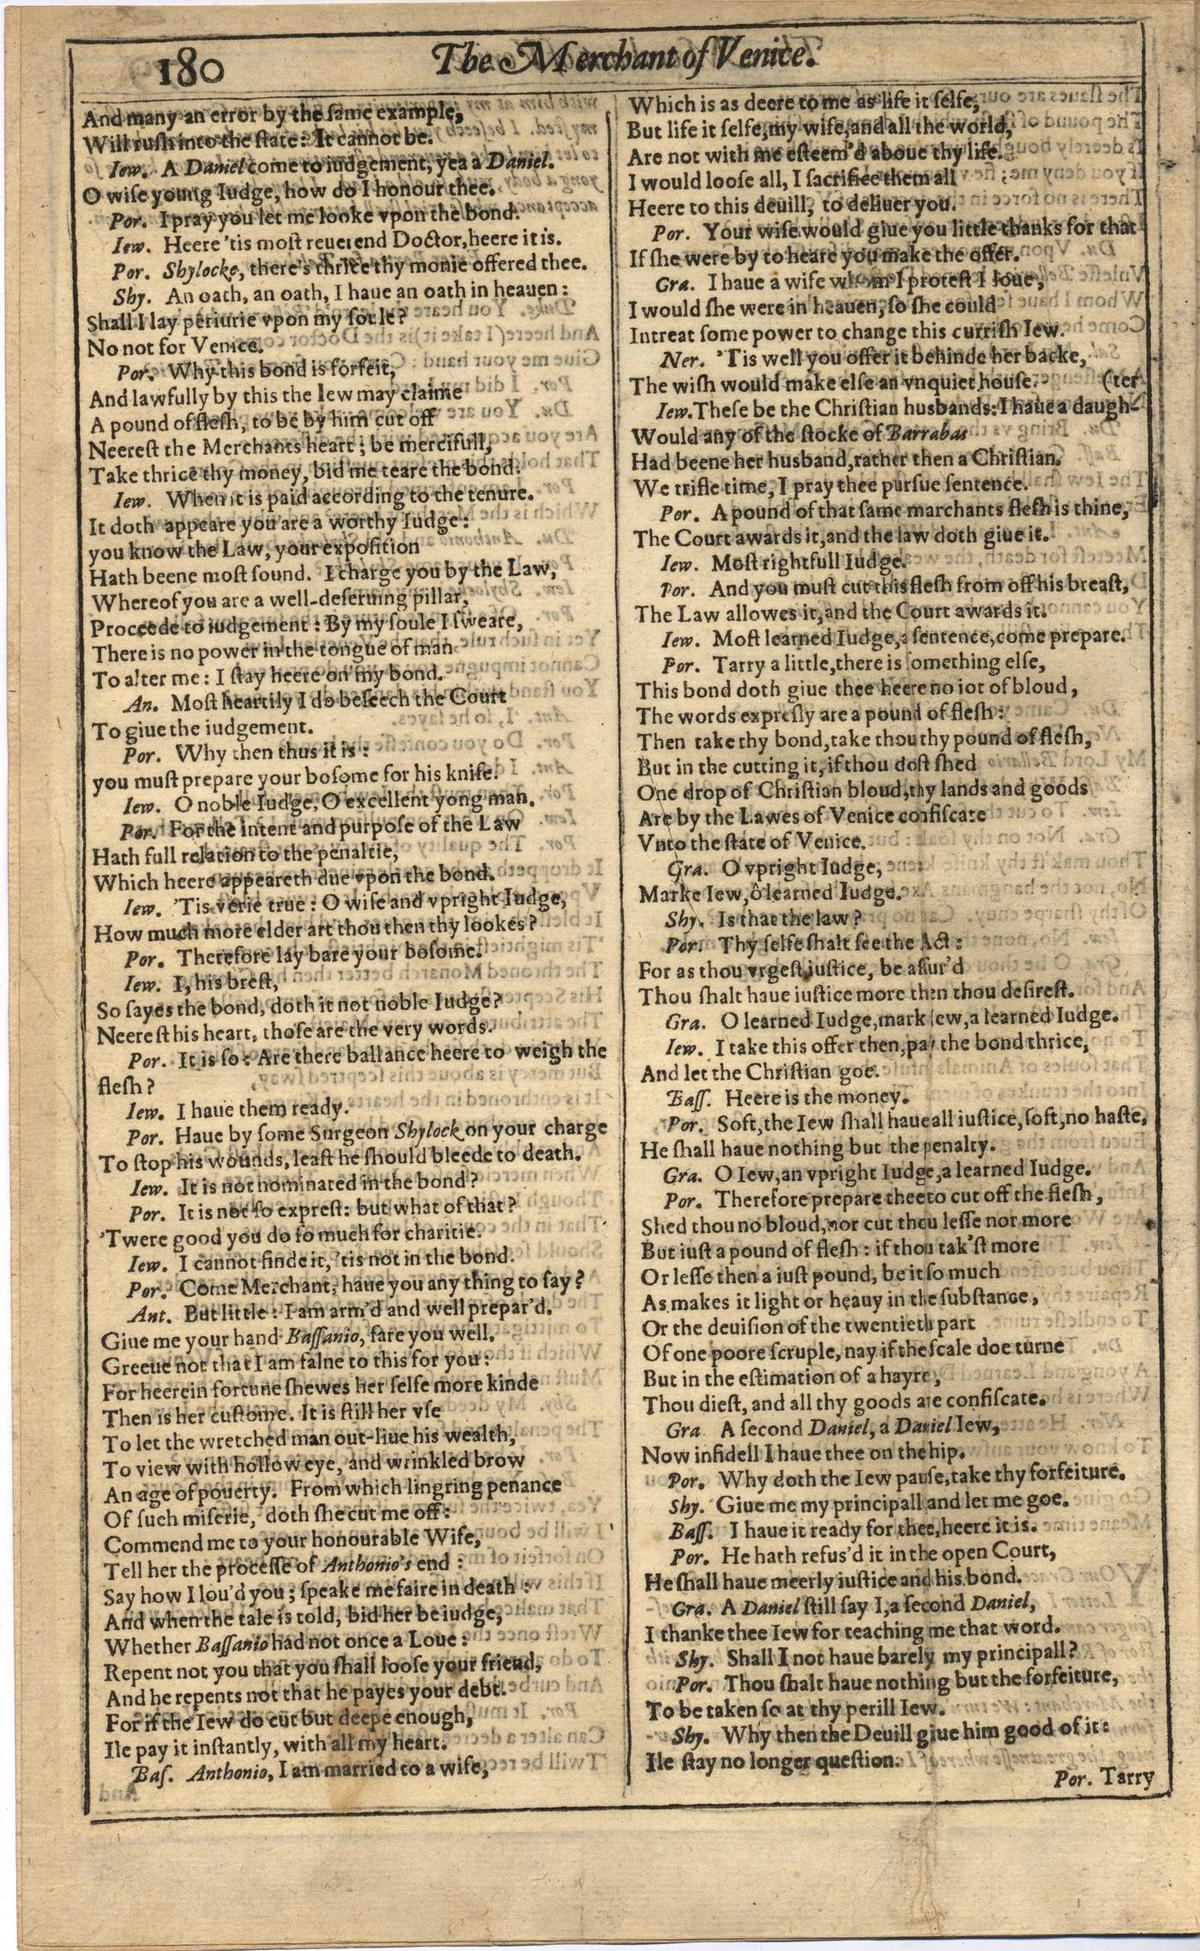 180
The Merchant of Venice.
And many an error by the same example,
Will rush into the state: It cannot be.
Iew. A Daniel come to iudgement, yea a Daniel.
O wise young Iudge, how do I honour thee.
Por. I pray you let me looke vpon the bond.
Iew. Heere 'tis most reuerend Doctor, heere it is.
Por. Shylocke, there's thrice thy monie offered thee.
Shy. An oath, an oath, I haue an oath in heauen:
Shall I lay periurie vpon my soule?
No not for Venice.
Por. Why this bond is forfeit,
And lawfully by this the Iew may claime
A pound of flesh, to be by him cut off
Neerest the Merchants heart; be mercifull,
Take thrice thy money, bid me teare the bond.
Iew. When it is paid according to the tenure.
It doth appeare you are a worthy Iudge:
you know the Law, your exposition
Hath beene most sound. I charge you by the Law,
Whereof you are a well-deseruing pillar,
Proceede to iudgement: By my soule I sweare,
There is no power in the tongue of man
To alter me: I stay heere on my bond.
An. Most heartily I do beseech the Court
To giue the iudgement.
Por. Why then thus it is:
you must prepare your bosome for his knife.
Iew. O noble Iudge, O excellent yong man.
Por. For the intent and purpose of the Law
Hath full relation to the penaltie,
Which heere appeareth due vpon the bond.
Iew. 'Tis verie true: O wise and vpright Iudge,
How much more elder art thou then thy lookes?
Por. Therefore lay bare your bosome.
Iew. I, his brest,
So sayes the bond, doth it not noble Iudge?
Neerest his heart, those are the very words.
Por. It is so: Are there ballance heere to weigh the
flesh?
Iew. I haue them ready.
Por. Haue by some Surgeon Shylock on your charge
To stop his wounds, least he should bleede to death.
Iew. It is not nominated in the bond?
Por. It is not so exprest: but what of that?
'Twere good you do so much for charitie.
Iew. I cannot finde it, 'tis not in the bond.
Por. Come Merchant, haue you any thing to say?
Ant. But little: I am arm'd and well prepar'd.
Giue me your hand Bassanio, fare you well,
Greeue not that I am falne to this for you:
For heerein fortune shewes her selfe more kinde
Then is her custome. It is still her vse
To let the wretched man out-liue his wealth,
To view with hollow eye, and wrinkled brow
An age of pouerty. From which lingring penance
Of such miserie, doth she cut me off:
Commend me to your honourable Wife,
Tell her the processe of Anthonio's end:
Say how I lou'd you; speake me faire in death:
And when the tale is told, bid her be iudge,
Whether Bassanio had not once a Loue:
Repent not you that you shall loose your friend,
And he repents not that he payes your debt.
For if the Iew do cut but deepe enough,
Ile pay it instantly, with all my heart.
Bas. Anthonio, I am married to a wife,
Which is as deere to me as life it selfe,
But life it selfe, my wife, and all the world,
Are not with me esteem'd aboue thy life.
I would loose all, I sacrifice them all
Heere to this deuill, to deliuer you.
Por. Your wife would giue you little thanks for that
If she were by to heare you make the offer.
Gra. I haue a wife whom I protest I loue,
I would she were in heauen, so she could
Intreat some power to change this currish Iew.
Ner. 'Tis well you offer it behinde her backe,
The wish would make else an vnquiet house. (ter
Iew. These be the Christian husbands: I haue a daugh-
Would any of the stocke of Barrabas
Had beene her husband, rather then a Christian.
We trifle time, I pray thee pursue sentence.
Por. A pound of that same marchants flesh is thine,
The Court awards it, and the law doth giue it.
Iew. Most rightfull Iudge.
Por. And you must cut this flesh from off his breast,
The Law allowes it, and the Court awards it.
Iew. Most learned Iudge, a sentence, come prepare.
Por. Tarry a little, there is something else,
This bond doth giue thee heere no iot of bloud,
The words expresly are a pound of flesh:
Then take thy bond, take thou thy pound of flesh,
But in the cutting it, if thou dost shed
One drop of Christian bloud, thy lands and goods
Are by the Lawes of Venice confiscate
Vnto the state of Venice.
Gra. O vpright Iudge,
Marke Iew, ô learned Iudge.
Shy. Is that the law?
Por. Thy selfe shalt see the Act:
For as thou vrgest iustice, be assur'd
Thou shalt haue iustice more then thou desirest.
Gra. O learned Iudge, mark Iew, a learned Iudge.
Iew. I take this offer then, pay the bond thrice,
And let the Christian goe.
Bass. Heere is the money.
Por. Soft, the Iew shall haue all iustice, soft, no haste,
He shall haue nothing but the penalty.
Gra. O Iew, an vpright Iudge, a learned Iudge.
Por. Therefore prepare thee to cut off the flesh,
Shed thou no bloud, nor cut thou lesse nor more
But iust a pound of flesh: if thou tak'st more
Or lesse then a iust pound, be it so much
As makes it light or heauy in the substance,
Or the deuision of the twentieth part
Of one poore scruple, nay if the scale doe turne
But in the estimation of a hayre,
Thou diest, and all thy goods are confiscate.
Gra A second Daniel, a Daniel Iew,
Now infidell I haue thee on the hip.
Por. Why doth the Iew pause, take thy forfeiture.
Shy. Giue me my principall and let me goe.
Bass. I haue it ready for thee, heere it is.
Por. He hath refus'd it in the open Court,
He shall haue meerly iustice and his bond.
Gra. A Daniel still say I, a second Daniel,
I thanke thee Iew for teaching me that word.
Shy. Shall I not haue barely my principall?
Por. Thou shalt haue nothing but the forfeiture,
To be taken so at thy perill Iew.
Shy. Why then the Deuill giue him good of it:
Ile stay no longer question.
Por. Tarry